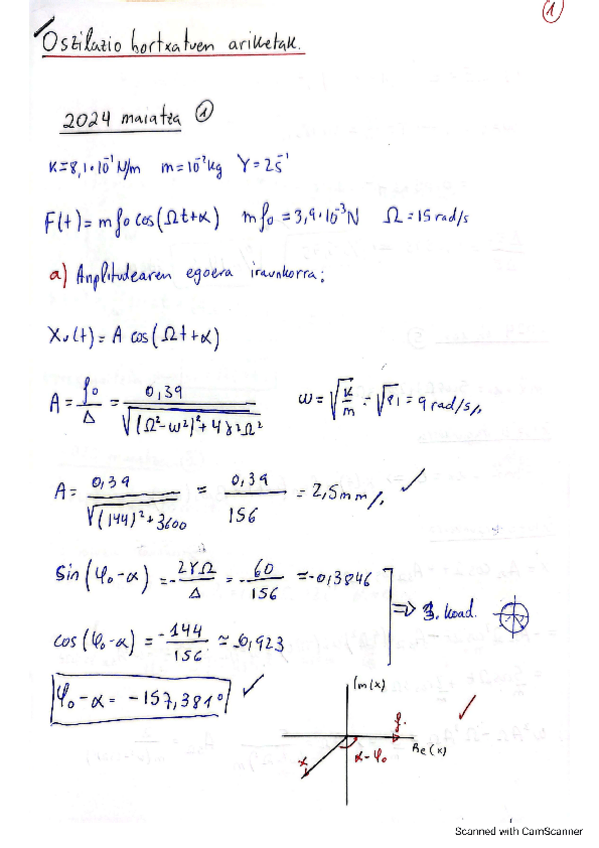 1
Oszilazio bortxatuen ariketak.
2024 maiatza 1
K=8,1·10⁻¹ N/m m=10⁻² kg γ=2 s⁻¹
F(t)= m f₀ cos(Ωt+α) m f₀ = 3,9·10⁻³ N Ω=15 rad/s
a) Anplitudearen egoera iraunkorra:
Xᵤ(t)= A cos(Ωt+α)
A = f₀/Δ = 0,39/√((Ω²-ω²)²+4γ²Ω²) ω = √(K/m) = √81 = 9 rad/s//
A = 0,39/√((144)²+3600) = 0,39/156 = 2,5 mm// ✓
Sin(φ₀-α) = -2γΩ/Δ = -60/156 ≈ -0,3846
cos(φ₀-α) = -144/156 ≈ -0,923
⇒ 3. koad.
φ₀-α = -157,381° ✓
Im(x)
f.
Re(x)
x
α-φ₀
✓
Scanned with CamScanner